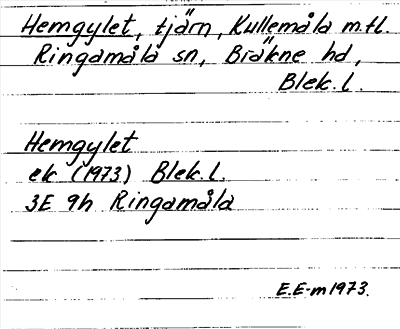 Hemgylet, tjärn, Kullemåla m.fl.
Ringamåla sn, Bräkne hd,
Blek. l.
Hemgylet
ek (1973) Blek. l.
3E 9h Ringamåla
E.E-m 1973.